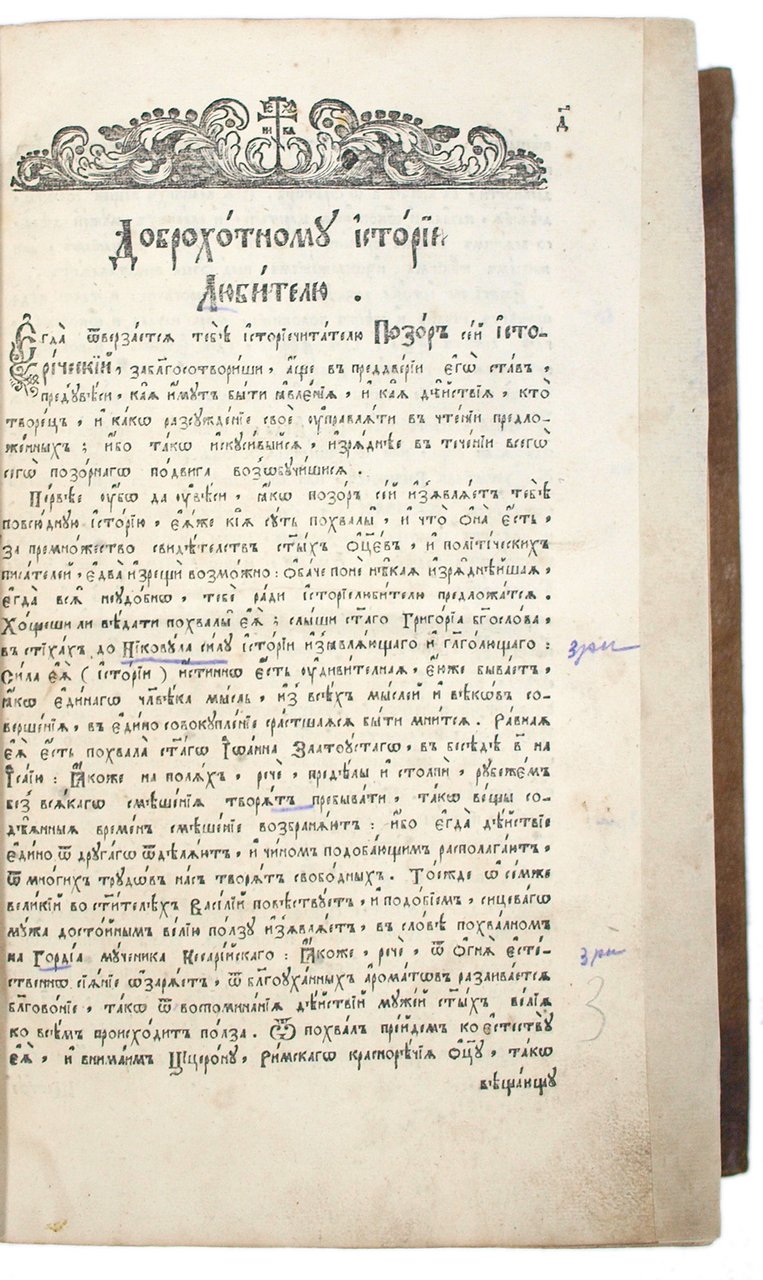 д҃
Доброхо́тному і҆сторі́и
Люби́телю .
Є҆гда̀ ѿверза́ется тебѣ̀ і҆сторїечита́телю Позо́ръ се́й і҆сто-
рі́ческїй , заблагосотвори́ши , а҆́ще въ преддве́рїи є҆гѡ̀ ста́въ ,
предꙋвѣ́си , ка́ѧ и҆́мꙋтъ бы́ти ꙗ҆влє́нїѧ , и҆ ка́ѧ дѣ̑йствїѧ , кто̀
творе́цъ , и҆ ка́кѡ разсꙋжде́нїе своѐ ᲂу҆правлѧ́ти въ чте́нїи предло-
же́нныхъ ; и҆́бо та́кѡ и҆скꙋси́выйсѧ , и҆зрѧ́днѣе въ тече́нїи всегѡ̀
сегѡ̀ позо́рнагѡ по́двига возѡбꙋчи́шисѧ .
Пе́рвѣе ᲂу҆́бѡ да ᲂу҆вѣ́си , ꙗ҆́кѡ позо́ръ се́й и҆з̾ѧвлѧ́етъ тебѣ̀
повсю́днꙋю і҆сто́рїю , є҆ѧ́же кі́ѧ сꙋ́ть похвалы̀ , и҆ что̀ ѻ҆на̀ є҆́сть ,
за премно́жество свидѣ́телствъ ст҃ы́хъ ѻ҆ц҃є́въ , и҆ полїти́ческихъ
писа́телей , є҆два̀ и҆зрещѝ возмо́жно : ѻ҆ба́че понѐ нѣ̑каѧ и҆зрѧднѣ̑йшаѧ ,
є҆гда̀ всѧ̑ неꙋдо́бнѡ , тебє̀ ра́ди і҆сторїелюби́телю предложа́тсѧ .
Хо́щеши ли вѣ́дати похвалы̀ є҆ѧ̀ ; слы́ши ст҃а́го Григо́рїа бг҃осло́ва ,
въ сті́хахъ до Нїковꙋ́ла си́лꙋ і҆сто́рїи и҆з̾ѧвлѧ́ющаго и҆ гл҃го́лющаго :
Си́ла є҆ѧ̀ ( і҆сто́рїи ) и҆́стиннѡ є҆́сть ᲂу҆диви́телнаѧ , є҆́юже быва́етъ ,
ꙗ҆́кѡ є҆ди́нагѡ чл҃вѣ́ка мы́сль , и҆з̾ всѣ́хъ мы́слей и҆ вѣкѡ́въ со-
верше́нїѧ , въ є҆ди́но совокꙋпле́нїе сра́стшаѧсѧ бы́ти мни́тсѧ . Ра́внаѧ
є҆ѧ̀ є҆́сть похвала̀ ст҃а́гѡ Іѡ҆а́нна Златоꙋ́стагѡ , въ бесѣ́дѣ в҃ на
І҆са́їю : Ꙗ҆́коже на полѧ́хъ , речѐ , предѣ́лы и҆ столпѝ , рꙋбеже́мъ
без̾ всѧ́кагѡ смѣше́нїѧ творѧ́тъ пребыва́ти , та́кѡ вє́щы со-
дѣ̑ѧнныѧ време́нъ смѣше́нїе возбранѧ́ютъ : и҆́бо є҆гда̀ дѣ́йствїе
є҆ди́но ѿ дрꙋга́гѡ ѿдѣлѧ́ютъ , и҆ чи́номъ подоба́ющимъ располага́ютъ ,
ѿ мно́гихъ трꙋдѡ́въ на́съ творѧ́тъ свобо́дныхъ . То́ежде ѡ҆ се́мже
вели́кїй во ст҃и́телѣхъ Васі́лїй повѣ́ствꙋетъ , и҆ подо́бїемъ , сицева́гѡ
мꙋ́жа досто́йнымъ ве́лїю по́лзꙋ и҆з̾ѧвлѧ́етъ , въ сло́вѣ похва́лномъ
на Го́рдїа мꙋ́ченика Кесарі́йскаго : Ꙗ҆́коже , речѐ , ѿ ѻ҆гнѧ̀ є҆сте́-
ственнѡ сїѧ́нїе ѡ҆зарѧ́етъ , ѿ бл҃гоꙋха́нныхъ а҆рома́тѡвъ разлива́етсѧ
бл҃гово́нїе , та́кѡ ѿ воспомина́нїѧ дѣ́йствїй мꙋже́й ст҃ы́хъ ве́лїѧ
ко всѣ́мъ происхо́дитъ по́лза . Ѿ похва́лъ пре́йдемъ ко є҆стествꙋ̀
є҆ѧ̀ , и҆ вни́маимъ Ціцеро́нꙋ , Ри́мскагѡ красноре́чїѧ ѻ҆ц҃ꙋ̀ , та́кѡ
вѣща́ющꙋ
зри
зри
3